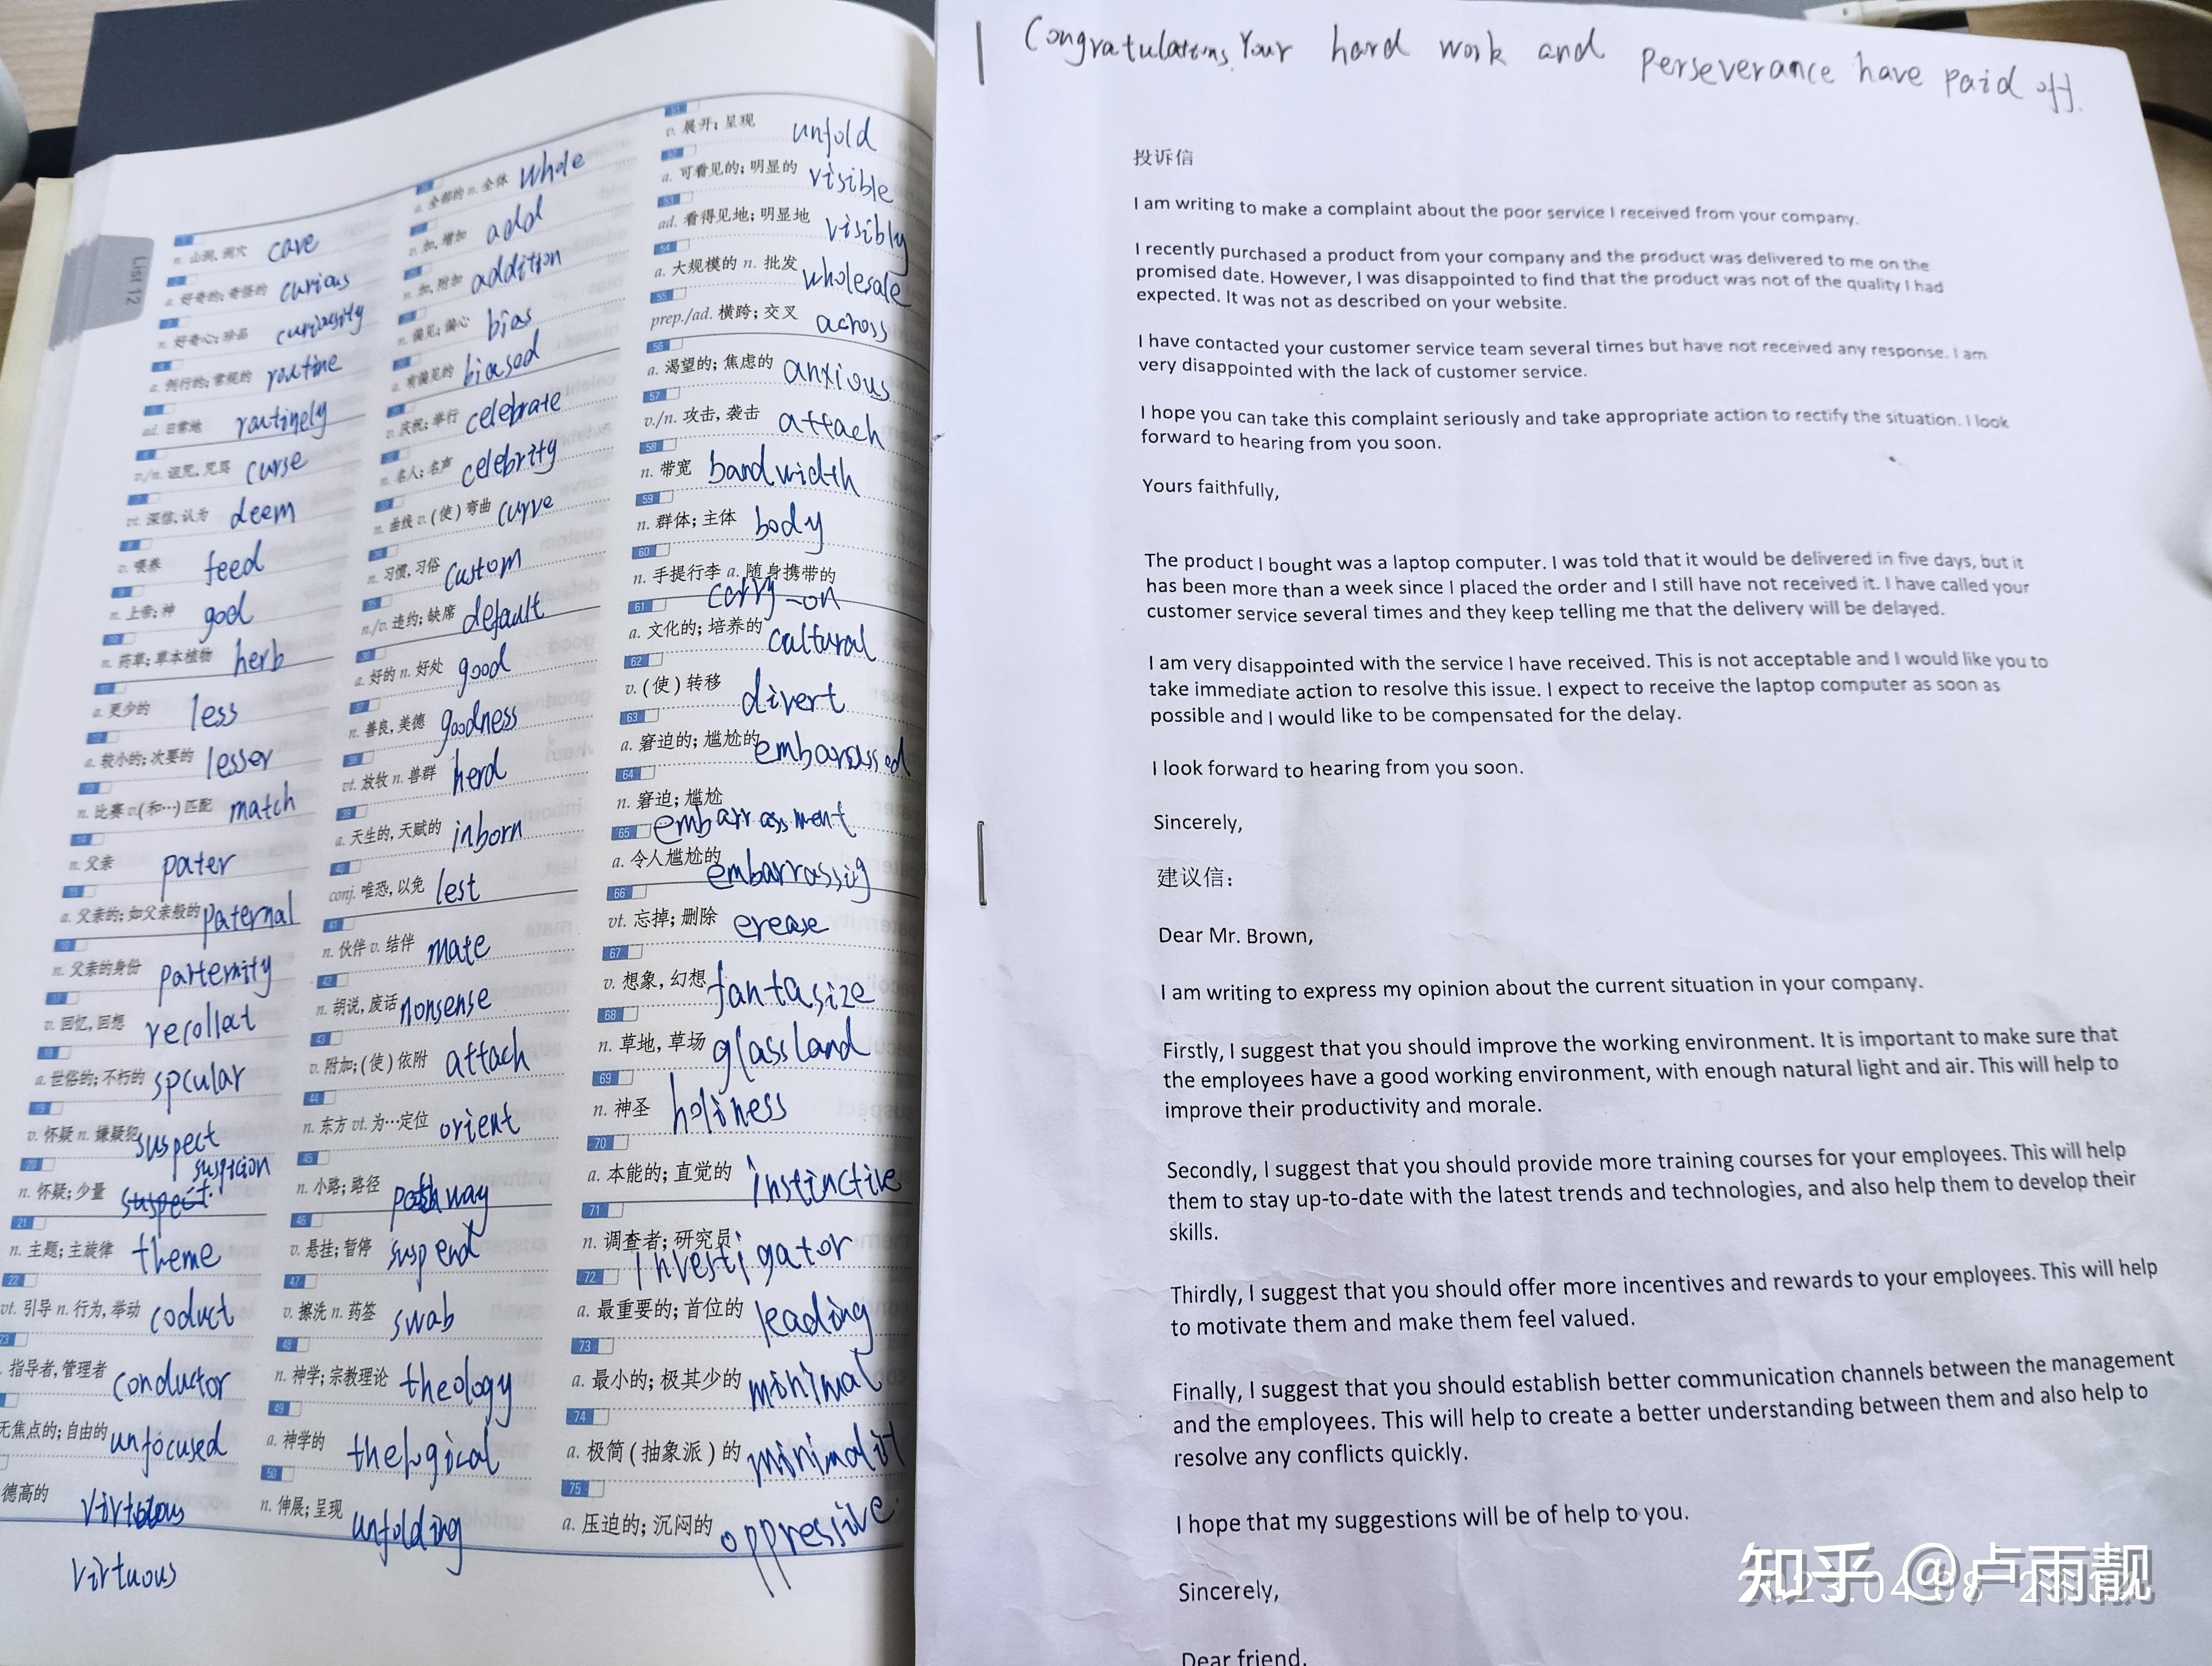 List 12
n. 山洞, 洞穴 cave
a. 好奇的; 奇怪的 curious
n. 好奇心; 珍品 curiousity
a. 例行的; 常规的 routine
ad. 日常地 routinely
v./n. 诅咒, 咒骂 curse
vt. 深信, 认为 deem
v. 喂养 feed
n. 上帝; 神 god
n. 药草; 草本植物 herb
a. 更少的 less
a. 较小的; 次要的 lesser
n. 比赛 v.(和…) 匹配 match
n. 父亲 pater
a. 父亲的; 如父亲般的 paternal
n. 父亲的身份 parternity
v. 回忆, 回想 recollect
a. 世俗的; 不朽的 spcular
v. 怀疑 n. 嫌疑犯 suspect
suspicion
20
n. 怀疑; 少量 suspect
21
n. 主题; 主旋律 theme
22
vt. 引导 n. 行为, 举动 coduct
23
指导者, 管理者 conductor
无焦点的; 自由的 unfocused
德高的 virtuous
virtuous
a. 全部的 n. 全体 whole
v. 加, 增加 add
n. 加, 附加 addition
n. 偏见; 偏心 bias
a. 有偏见的 biased
v. 庆祝; 举行 celebrate
n. 名人; 名声 celebrity
n. 曲线 v. (使) 弯曲 curve
n. 习惯, 习俗 custom
n./v. 违约; 缺席 default
a. 好的 n. 好处 good
n. 善良, 美德 goodness
vt. 放牧 n. 兽群 herd
39
a. 天生的, 天赋的 inborn
40
conj. 唯恐, 以免 lest
41
n. 伙伴 v. 结伴 mate
42
n. 胡说, 废话 nonsense
43
v. 附加; (使) 依附 attach
44
n. 东方 vt. 为…定位 orient
45
n. 小路; 路径 pathway
46
v. 悬挂; 暂停 suspend
47
v. 擦洗 n. 药签 swab
48
n. 神学; 宗教理论 theology
49
a. 神学的 thelogical
50
n. 伸展; 呈现 unfolding
51
v. 展开; 呈现 unfold
52
a. 可看见的; 明显的 visible
53
ad. 看得见地; 明显地 visibly
54
a. 大规模的 n. 批发 wholesale
55
prep./ad. 横跨; 交叉 across
56
a. 渴望的; 焦虑的 anxious
57
v./n. 攻击, 袭击 attach
58
n. 带宽 bandwidth
59
n. 群体; 主体 body
60
n. 手提行李 a. 随身携带的
carry-on
61
a. 文化的; 培养的 cultural
62
v. (使) 转移 divert
63
a. 窘迫的; 尴尬的 embarassed
64
n. 窘迫; 尴尬
embarrassment
65
a. 令人尴尬的
embarrassig
66
vt. 忘掉; 删除 erease
67
v. 想象, 幻想 fantasize
68
n. 草地, 草场 glassland
69
n. 神圣 holiness
70
a. 本能的; 直觉的 instinctive
71
n. 调查者; 研究员
investigator
72
a. 最重要的; 首位的 leading
73
a. 最小的; 极其少的 minimal
74
a. 极简 (抽象派) 的
75
a. 压迫的; 沉闷的 oppressive
Congratulations. Your hard work and perseverance have paid off.
投诉信
I am writing to make a complaint about the poor service I received from your company.
I recently purchased a product from your company and the product was delivered to me on the
promised date. However, I was disappointed to find that the product was not of the quality I had
expected. It was not as described on your website.
I have contacted your customer service team several times but have not received any response. I am
very disappointed with the lack of customer service.
I hope you can take this complaint seriously and take appropriate action to rectify the situation. I look
forward to hearing from you soon.
Yours faithfully,
The product I bought was a laptop computer. I was told that it would be delivered in five days, but it
has been more than a week since I placed the order and I still have not received it. I have called your
customer service several times and they keep telling me that the delivery will be delayed.
I am very disappointed with the service I have received. This is not acceptable and I would like you to
take immediate action to resolve this issue. I expect to receive the laptop computer as soon as
possible and I would like to be compensated for the delay.
I look forward to hearing from you soon.
Sincerely,
建议信：
Dear Mr. Brown,
I am writing to express my opinion about the current situation in your company.
Firstly, I suggest that you should improve the working environment. It is important to make sure that
the employees have a good working environment, with enough natural light and air. This will help to
improve their productivity and morale.
Secondly, I suggest that you should provide more training courses for your employees. This will help
them to stay up-to-date with the latest trends and technologies, and also help them to develop their
skills.
Thirdly, I suggest that you should offer more incentives and rewards to your employees. This will help
to motivate them and make them feel valued.
Finally, I suggest that you should establish better communication channels between the management
and the employees. This will help to create a better understanding between them and also help to
resolve any conflicts quickly.
I hope that my suggestions will be of help to you.
Sincerely,
Dear friend,
知乎 @卢雨靓
2023.04.08